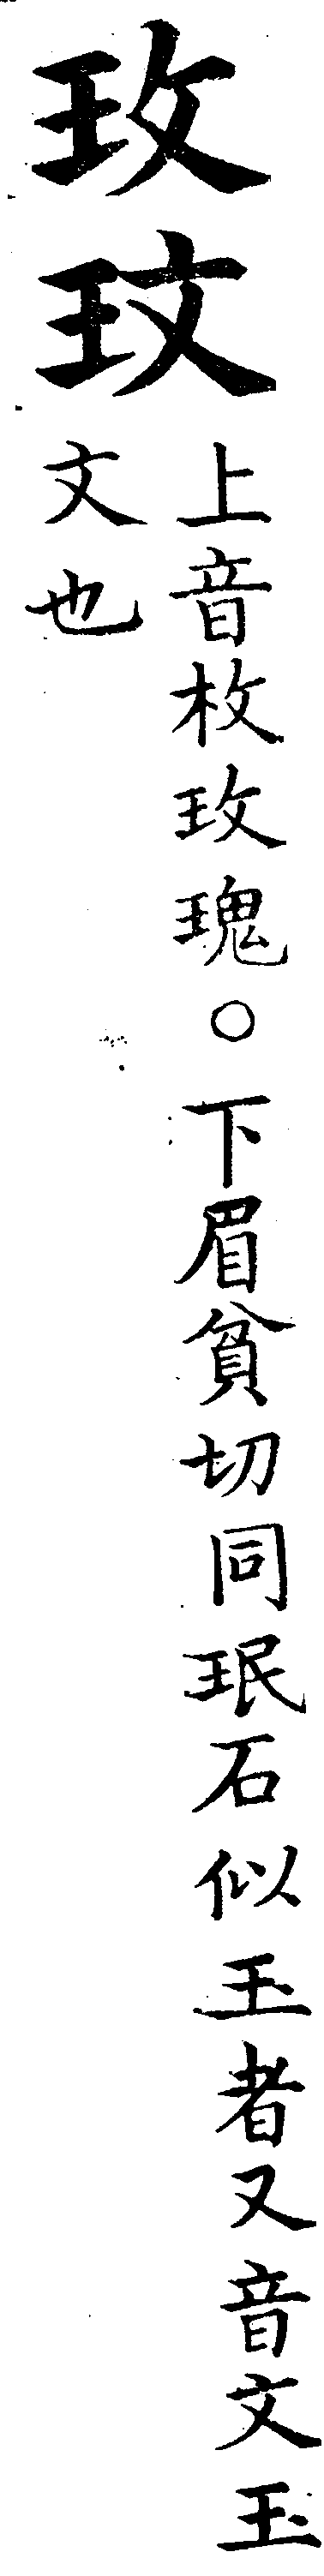 玫玟
上音枚玫瑰○下眉貧切同珉石似玉者又音文玉
文也